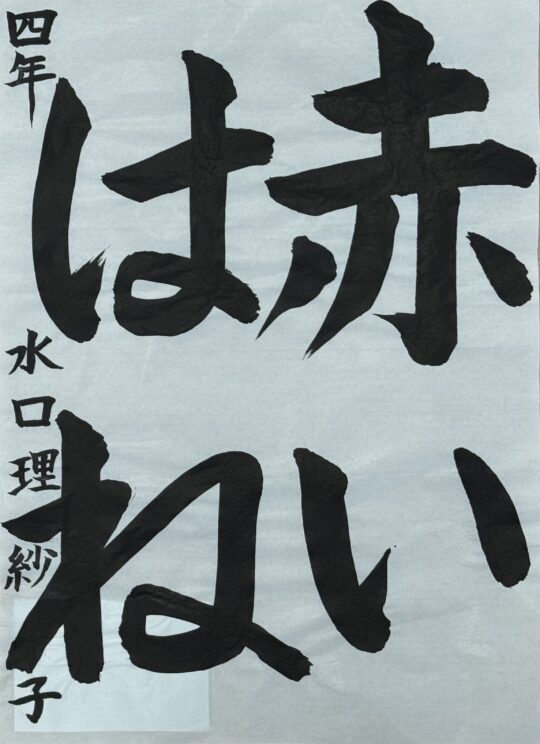 赤い
はね
四年 水口理紗子